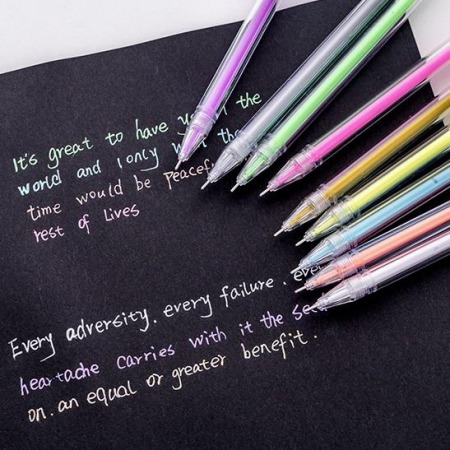 It's great to have you in the
world and I only wish the
time would be peaceful
rest of lives
Every adversity. every failure. eve
heartache carries with it the see
on. an equal or greater benefit.